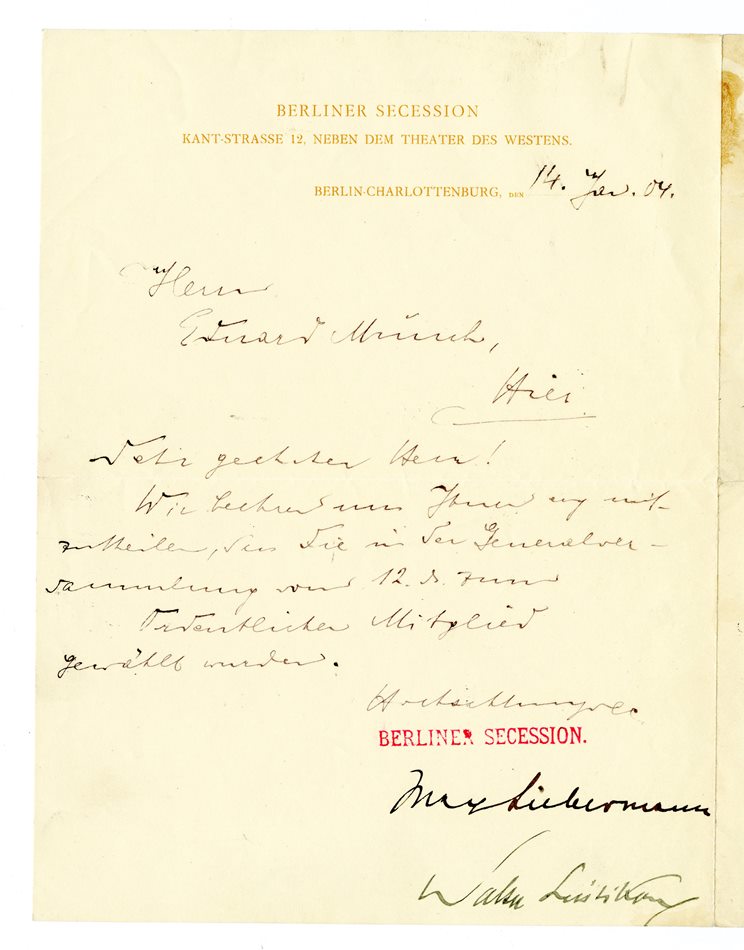 BERLINER SECESSION
KANT-STRASSE 12, NEBEN DEM THEATER DES WESTENS.
BERLIN-CHARLOTTENBURG, DEN 14. Jan. 04.
Herrn
Eduard Münch,
Hier
Sehr geehrter Herr!
Wir beehren uns Ihnen erg mit-
zutheilen, dass Sie in der Generalver-
sammlung vom 12. d. zum
Ordentlichen Mitglied
gewählt wurden.
Hochachtungsvoll
BERLINER SECESSION.
Max Liebermann
Walter Leistikow